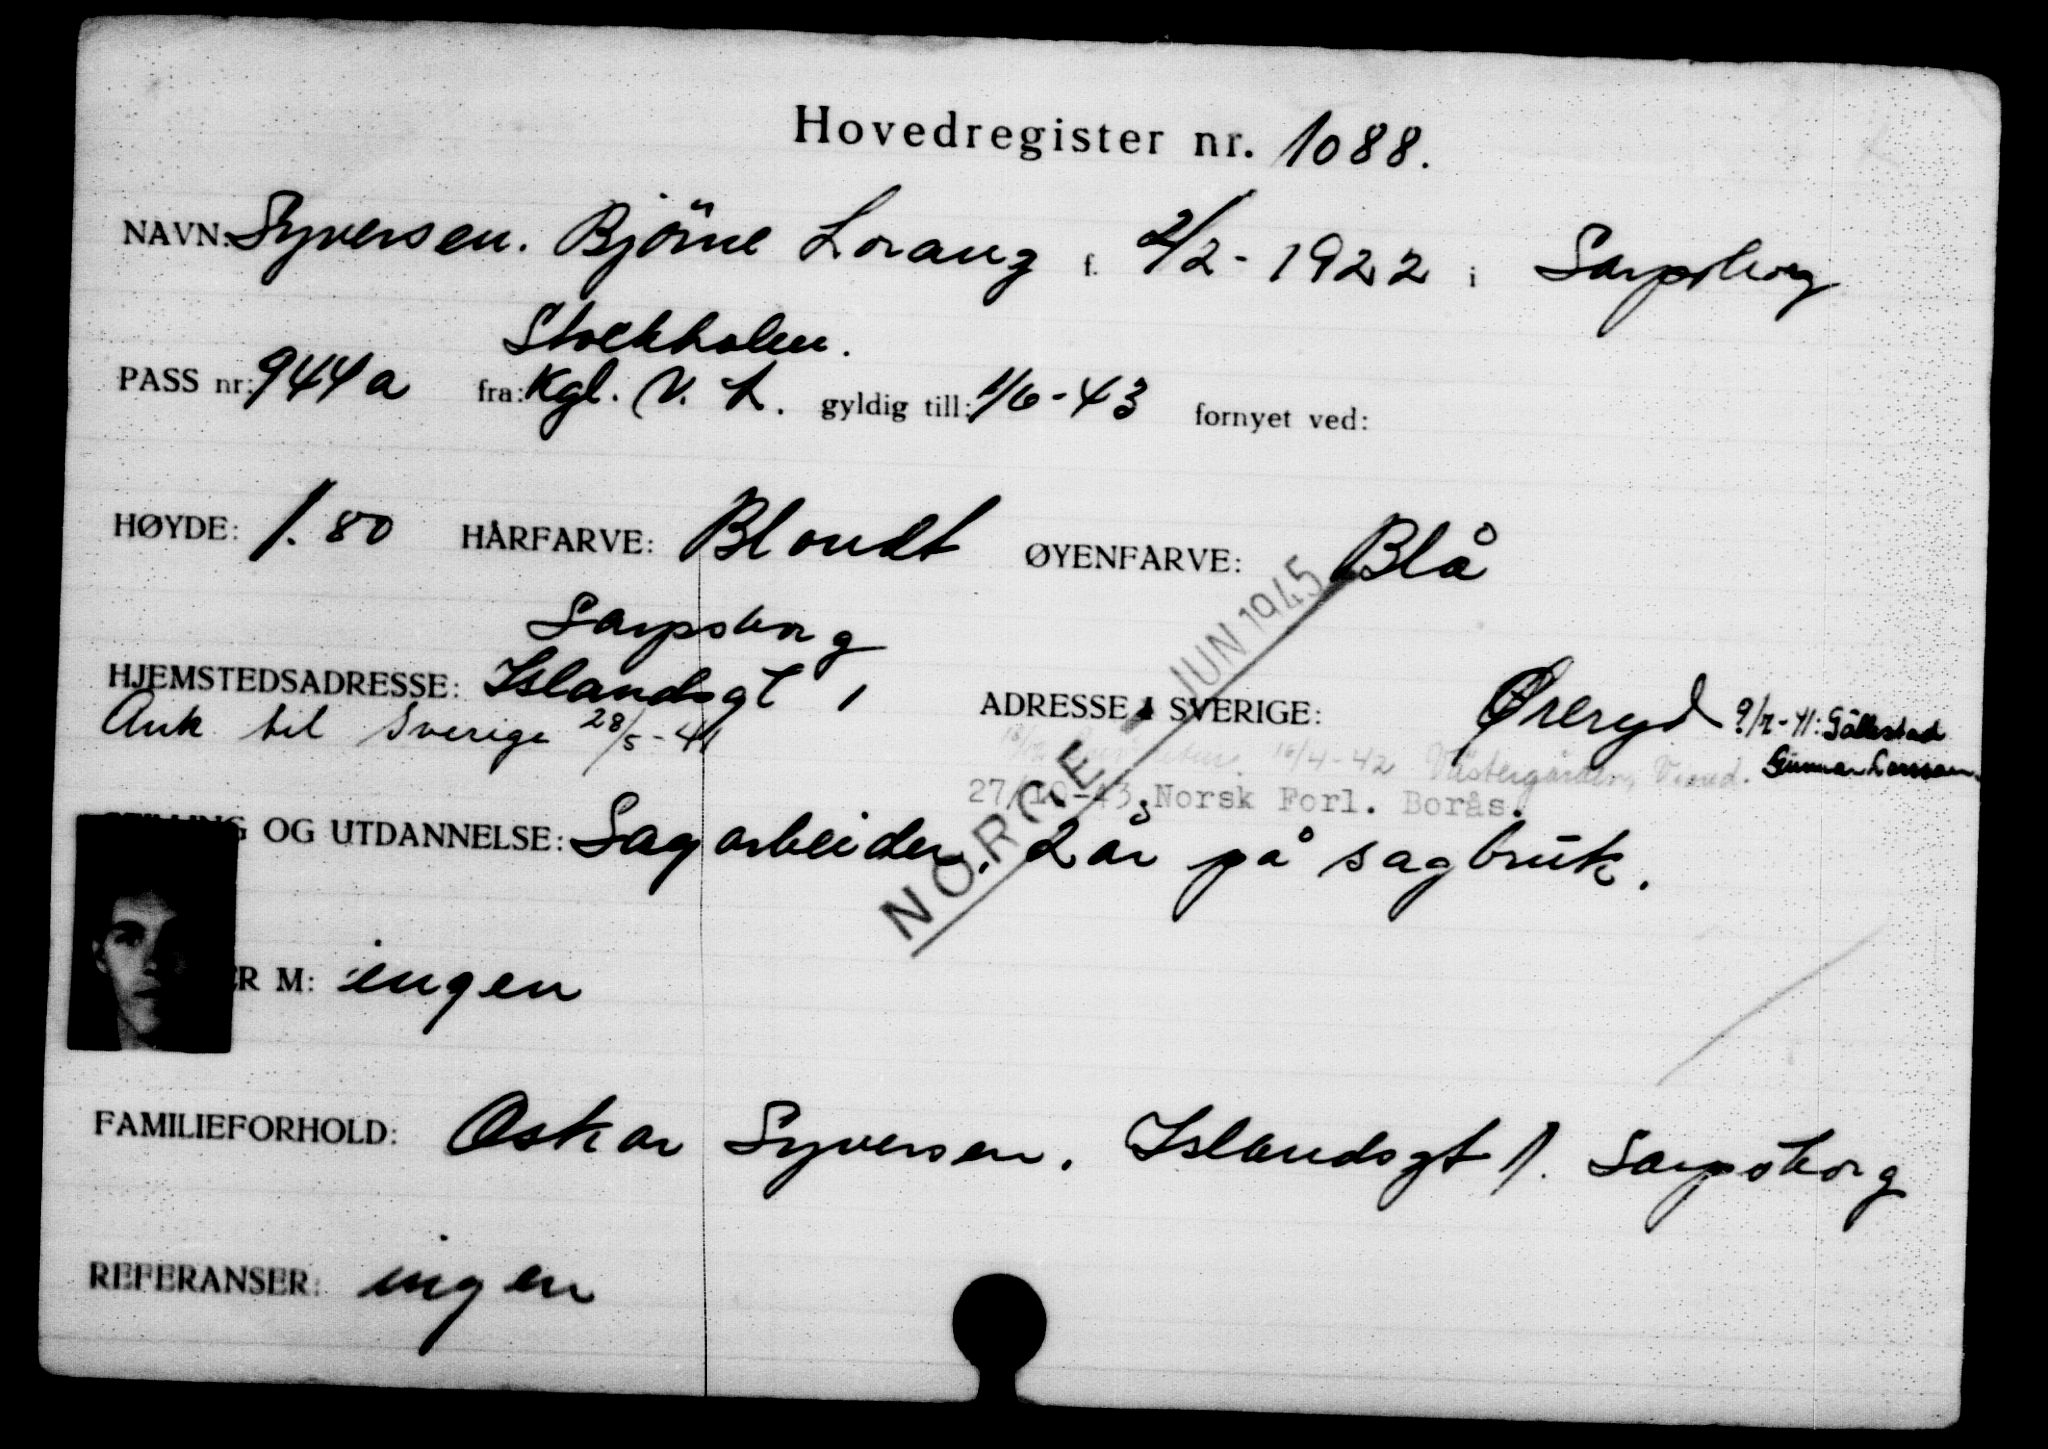 Hovedregister nr. 1088.
NAVN: Syversen. Bjørne Lorang f. 2/2-1922 i Sarpsborg
Stockholm.
PASS nr: 944a fra: Kgl. N. L. gyldig till: 1/6-43 fornyet ved:
HØYDE: 1.80 HÅRFARVE: Blondt ØYENFARVE: Blå
Sarpsborg
HJEMSTEDSADRESSE: Islandsgt 1 ADRESSE I SVERIGE: Øreryd 9/7-41: Gällstad
Ank til Sverige 28/5-41 16/4-42 Västergården, Gunnar Larsson.
27/10-43. Norsk Forl. Borås.
OG UTDANNELSE: Sagarbeider. 2 år på sagbruk.
NORGE JUN 1945
ER M: ingen
FAMILIEFORHOLD: Oskar Syversen. Islandsgt 1. Sarpsborg
REFERANSER: ingen